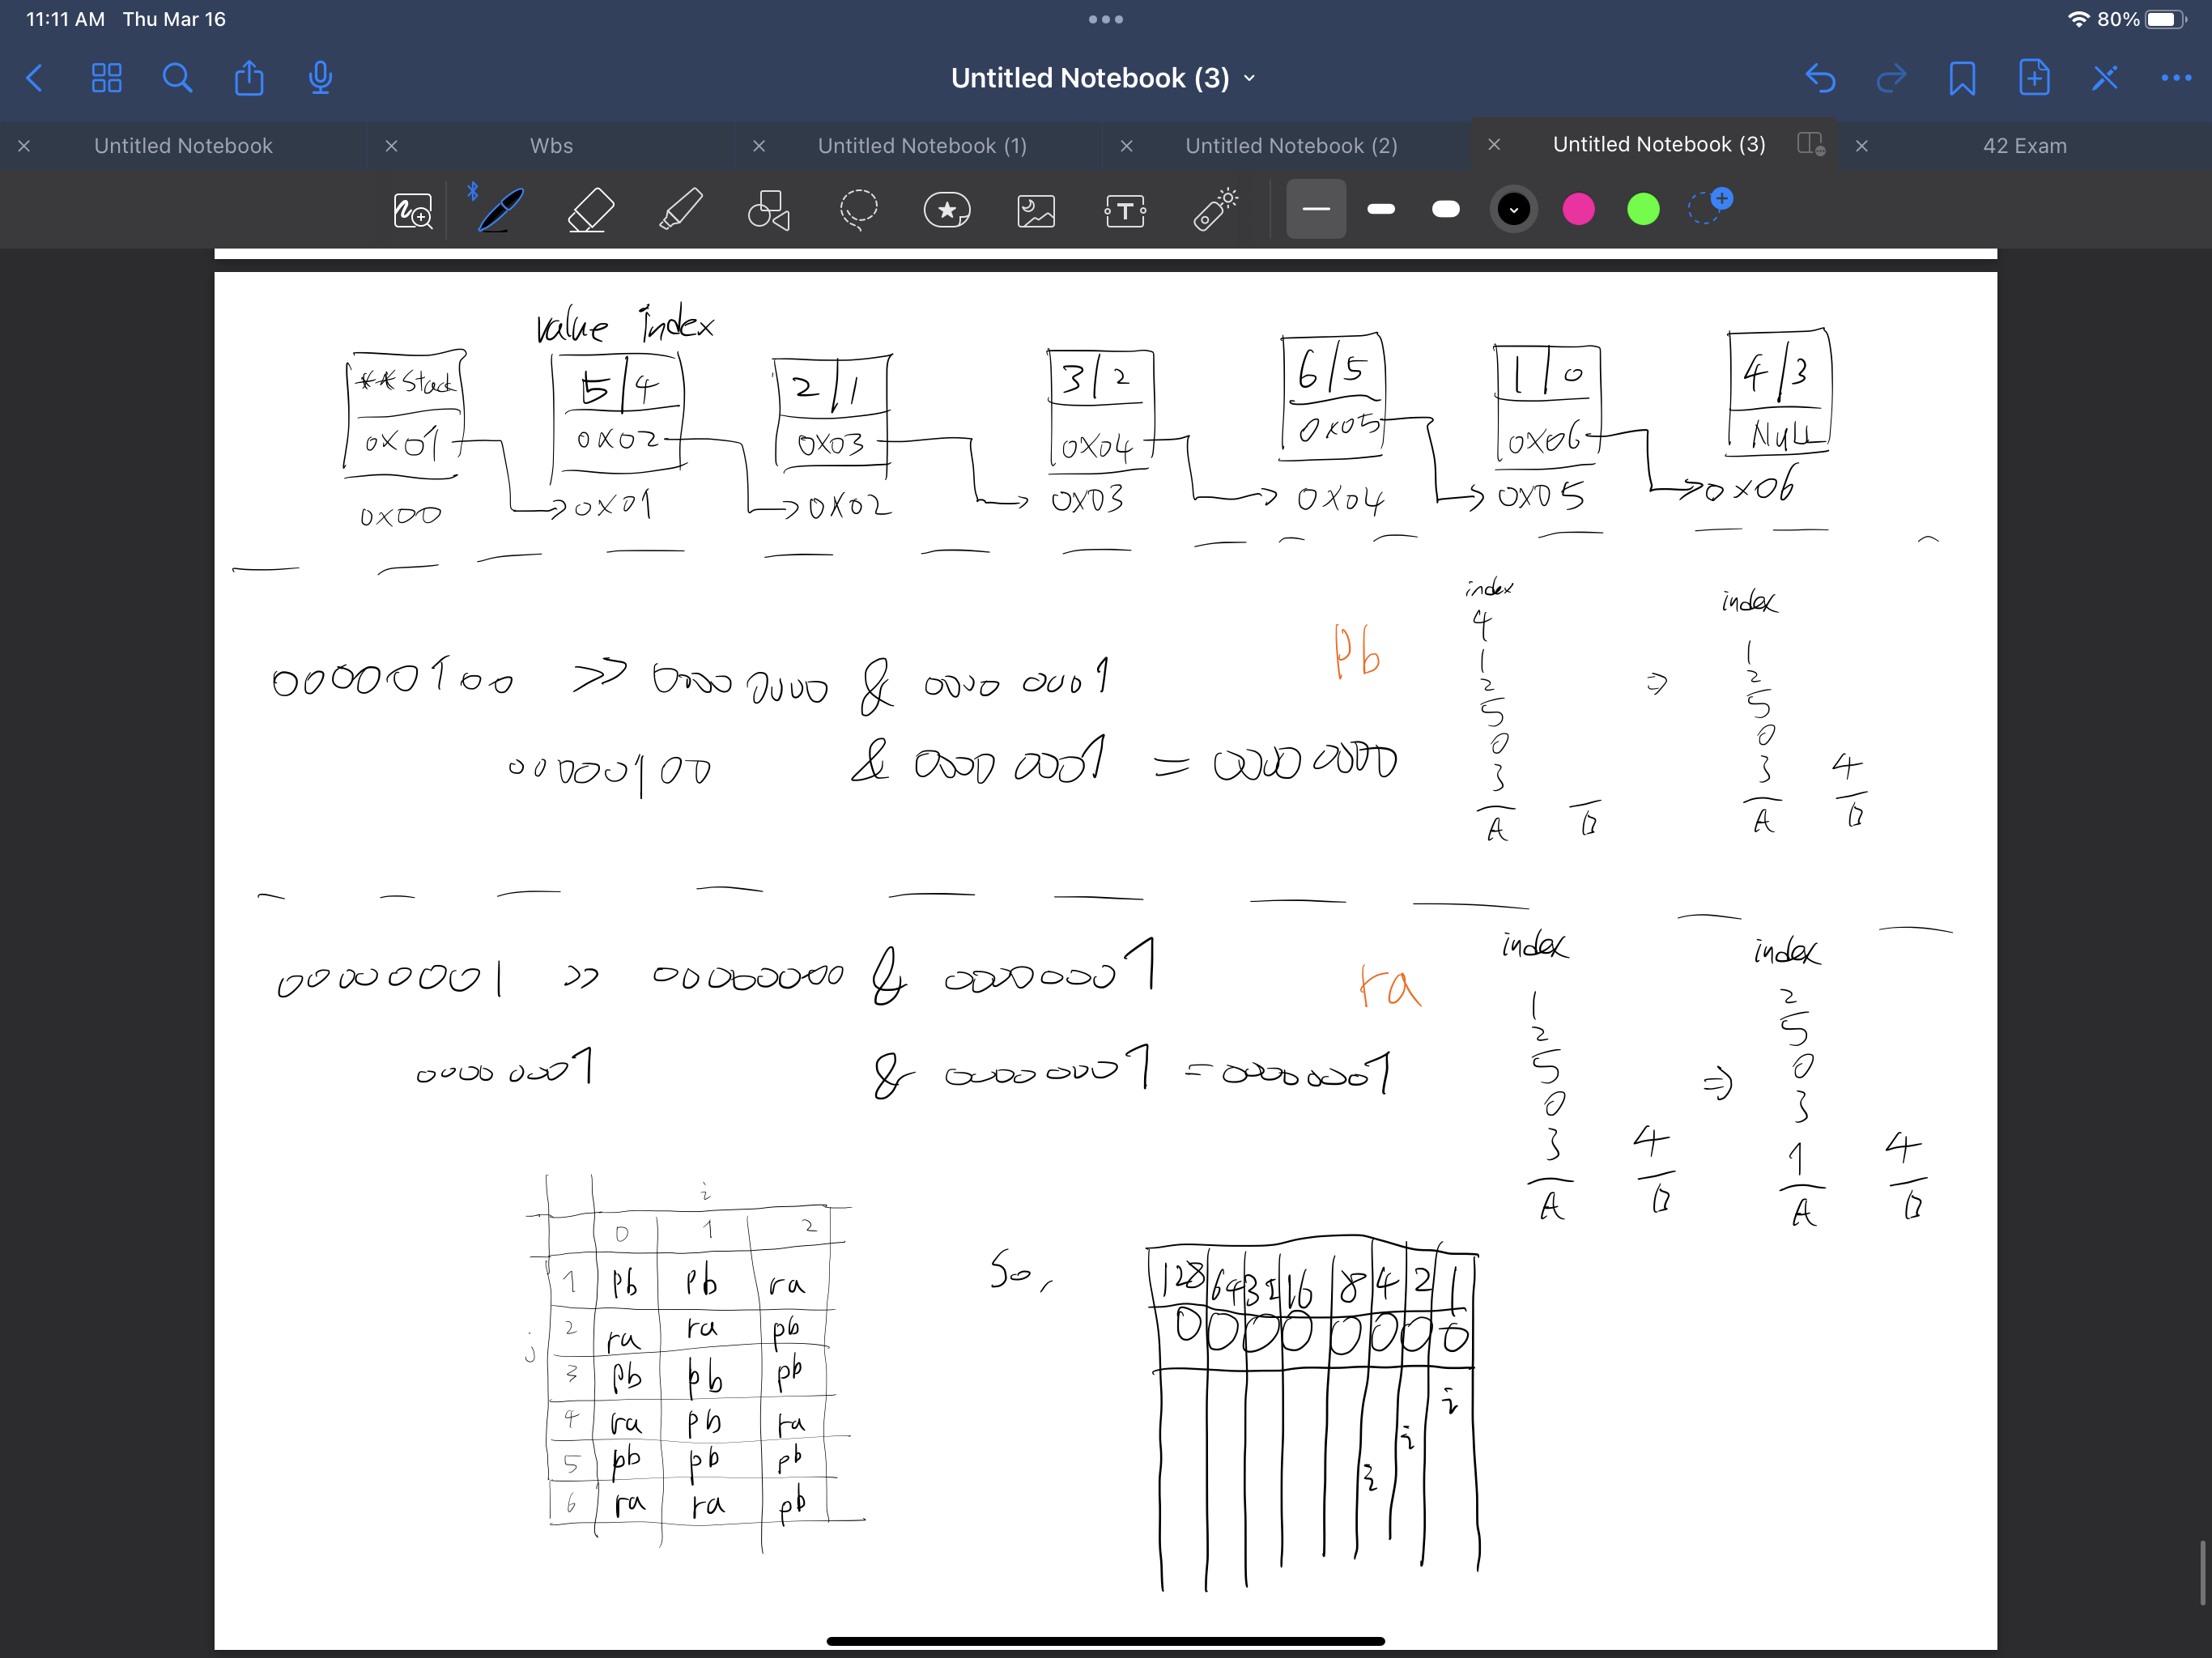 11:11 AM Thu Mar 16
80%
Untitled Notebook (3)
Untitled Notebook
Wbs
Untitled Notebook (1)
Untitled Notebook (2)
Untitled Notebook (3)
42 Exam
value index
**Stack 5 4 2 1 3 2 6 5 1 0 4 3
0x01 0x02 0x03 0x04 0x05 0x06 NULL
0x00 0x01 0x02 0x03 0x04 0x05 0x06
00000100 >> 0000 0000 & 0000 0001
00000100 & 0000 0001 = 0000 0000
Pb
index
4
1
2
5
0
3
A B
⇒
index
1
2
5
0
3 4
A B
00000001 >> 00000000 & 00000001
0000 0001 & 0000 0001 = 0000 0001
ra
index
1
2
5
0
3 4
A B
⇒
index
2
5
0
3
1 4
A B
i
0 1 2
1 pb pb ra
2 ra ra pb
j
3 pb pb pb
4 ra pb ra
5 pb pb pb
6 ra ra pb
So,
128 64 32 16 8 4 2 1
0 0 0 0 0 0 0 0
i
i
i